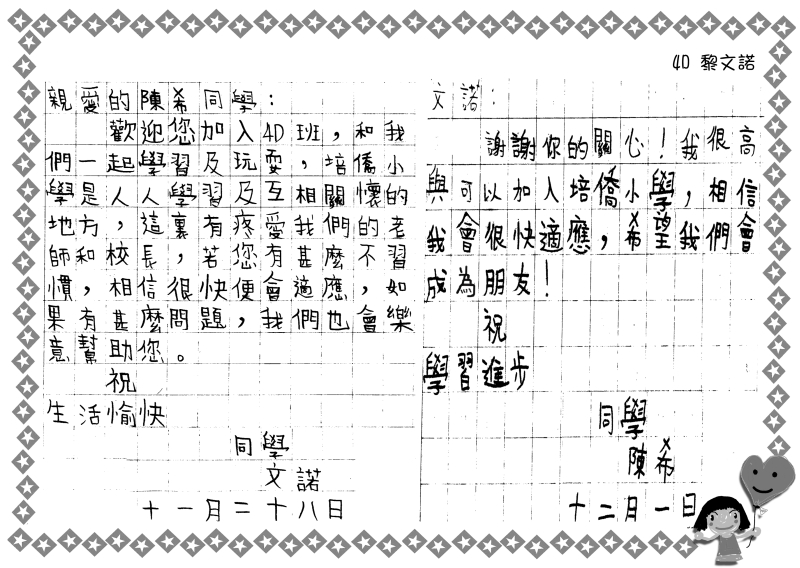 4D 黎文諾
親愛的陳希同學：
歡迎您加入4D班，和我
們一起學習及玩耍，培僑小
學是人人學習及互相關懷的
地方，這裏有疼愛我們的老
師和校長，若您有甚麼不習
慣，相信很快便會適應，如
果有甚麼問題，我們也會樂
意幫助您。
祝
生活愉快
同學
文諾
十一月二十八日
文諾：
謝謝你的關心！我很高
與可以加入培僑小學，相信
我會很快適應，希望我們會
成為朋友！
祝
學習進步
同學
陳希
十二月一日